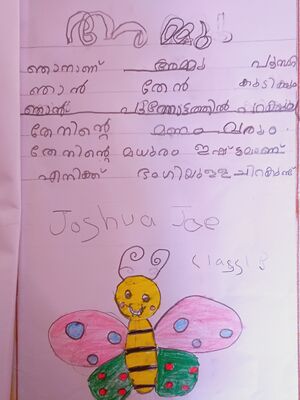 ഞാനാണ് അമ്മു
ഞാൻ തേൻ കുടിക്കും
ഞാൻ പൂന്തോട്ടത്തിൽ പറക്കും
തേനിന്റെ മണം വരും
തേനിന്റെ മധുരം ഇഷ്ടമാണ്
എനിക്ക് ഭംഗിയുള്ള ചിറകുണ്ട്
Joshua Joe
class